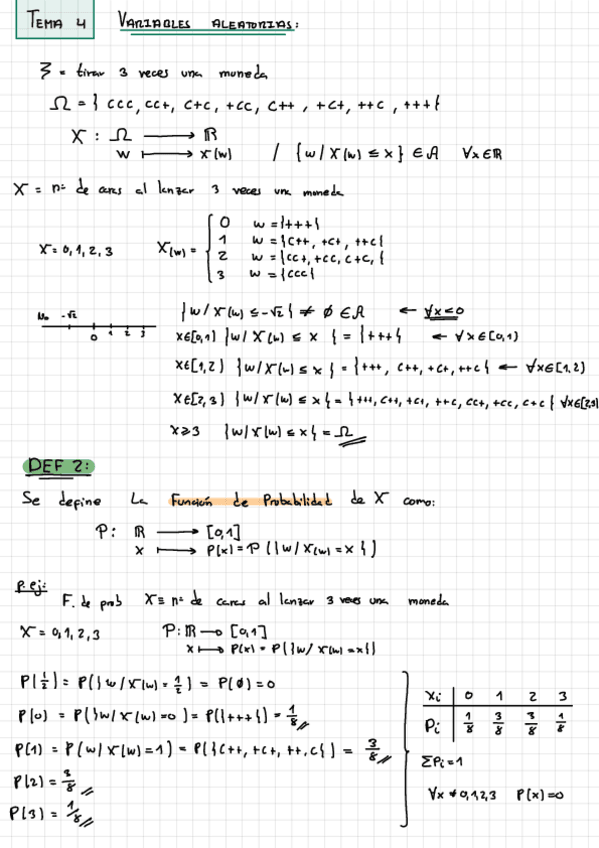 TEMA 4 VARIABLES ALEATORIAS:
ξ = tirar 3 veces una moneda
Ω = { CCC, CC+, C+C, +CC, C++, +C+, ++C, +++ }
X : Ω ⟶ ℝ
w ⟼ X(w) / { w / X(w) ≤ x } ∈ A ∀x∈ℝ
X = nº de caras al lanzar 3 veces una moneda
0 w = {+++}
X = 0, 1, 2, 3 X(w) = 1 w = {C++, +C+, ++C}
2 w = {CC+, +CC, C+C, {
3 w = {CCC}
No -√2 0 1 2 3
{ w / X(w) ≤ -√2 } ≠ ∅ ∈ A ← ∀x<0
x∈[0,1) { w / X(w) ≤ x } = {+++} ← ∀x∈[0,1)
x∈[1,2) { w / X(w) ≤ x } = {+++, C++, +C+, ++C} ← ∀x∈[1,2)
x∈[2,3) { w / X(w) ≤ x } = {+++, C++, +C+, ++C, CC+, +CC, C+C} ∀x∈[2,3)
x⩾3 { w / X(w) ≤ x } = Ω
DEF 2:
Se define La Función de Probabilidad de X como:
P: ℝ ⟶ [0,1]
x ⟼ P(x) = P ( { w / X(w) = x } )
p.ej:
F. de prob X ≡ nº de caras al lanzar 3 veces una moneda
X = 0, 1, 2, 3 P: ℝ ⟶ [0,1]
x ⟼ P(x) = P({w / X(w) = x})
P(1/2) = P({ w / X(w) = 1/2 } = P(∅) = 0
P(0) = P({w / X(w) = 0} = P({+++}) = 1/8
P(1) = P(w / X(w) = 1) = P({C++, +C+, ++,C}) = 3/8
P(2) = 3/8
P(3) = 1/8
Xi 0 1 2 3
Pi 1/8 3/8 3/8 1/8
ΣPi = 1
∀x ≠ 0,1,2,3 P(x) = 0